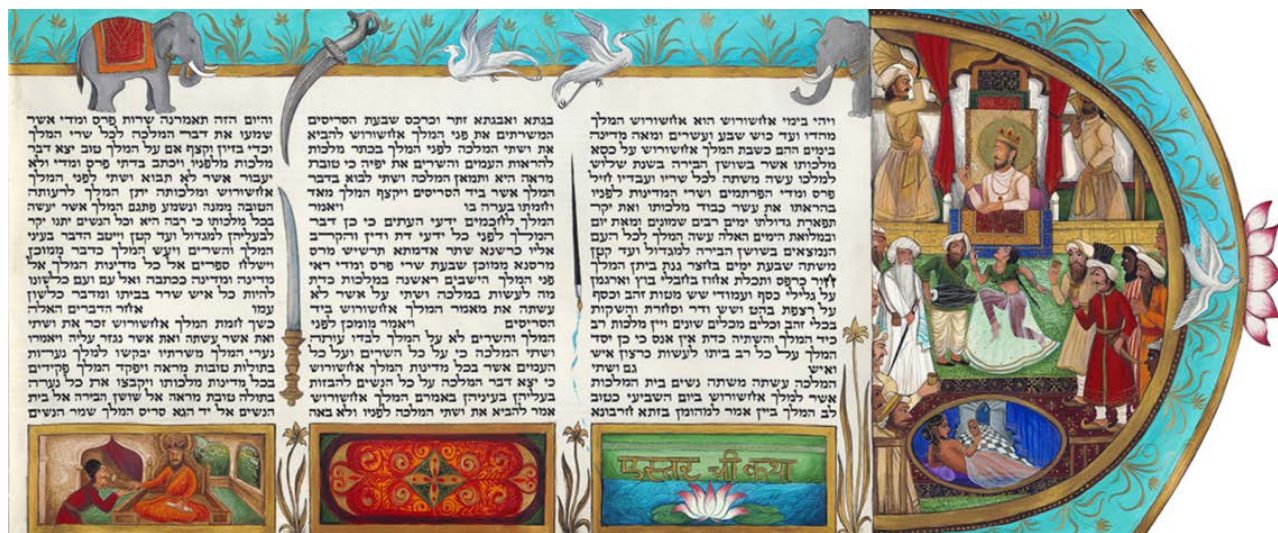 ויהי בימי אחשורוש הוא אחשורוש המלך
מהדו ועד כוש שבע ועשרים ומאה מדינה
בימים ההם כשבת המלך אחשורוש על כסא
מלכותו אשר בשושן הבירה בשנת שלוש
למלכו עשה משתה לכל שריו ועבדיו חיל
פרס ומדי הפרתמים ושרי המדינות לפניו
בהראתו את עשר כבוד מלכותו ואת יקר
תפארת גדולתו ימים רבים שמונים ומאת יום
ובמלואת הימים האלה עשה המלך לכל העם
הנמצאים בשושן הבירה למגדול ועד קטן
משתה שבעת ימים בחצר גנת ביתן המלך
חור כרפס ותכלת אחוז בחבלי בוץ וארגמן
על גלילי כסף ועמודי שש מטות זהב וכסף
על רצפת בהט ושש ודר וסחרת והשקות
בכלי זהב וכלים מכלים שונים ויין מלכות רב
כיד המלך והשתיה כדת אין אנס כי כן יסד
המלך על כל רב ביתו לעשות כרצון איש
ואיש גם ושתי
המלכה עשתה משתה נשים בית המלכות
אשר למלך אחשורוש ביום השביעי כטוב
לב המלך ביין אמר למהומן בזתא חרבונא
בגתא ואבגתא זתר וכרכס שבעת הסריסים
המשרתים את פני המלך אחשורוש להביא
את ושתי המלכה לפני המלך בכתר מלכות
להראות העמים והשרים את יפיה כי טובת
מראה היא ותמאן המלכה ושתי לבוא בדבר
המלך אשר ביד הסריסים ויקצף המלך מאד
וחמתו בערה בו ויאמר
המלך לחכמים ידעי העתים כי כן דבר
המלך לפני כל ידעי דת ודין והקרב
אליו כרשנא שתר אדמתא תרשיש מרס
מרסנא ממוכן שבעת שרי פרס ומדי ראי
פני המלך הישבים ראשנה במלכות כדת
מה לעשות במלכה ושתי על אשר לא
עשתה את מאמר המלך אחשורוש ביד
הסריסים ויאמר מומכן לפני
המלך והשרים לא על המלך לבדו עותה
ושתי המלכה כי על כל השרים ועל כל
העמים אשר בכל מדינות המלך אחשורוש
כי יצא דבר המלכה על כל הנשים להבזות
בעליהן בעיניהן באמרם המלך אחשורוש
אמר להביא את ושתי המלכה לפניו ולא באה
והיום הזה תאמרנה שרות פרס ומדי אשר
שמעו את דבר המלכה לכל שרי המלך
וכדי בזיון וקצף אם על המלך טוב יצא דבר
מלכות מלפניו ויכתב בדתי פרס ומדי ולא
יעבור אשר לא תבוא ושתי לפני המלך
אחשורוש ומלכותה יתן המלך לרעותה
הטובה ממנה ונשמע פתגם המלך אשר יעשה
בכל מלכותו כי רבה היא וכל הנשים יתנו יקר
לבעליהן למגדול ועד קטן וייטב הדבר בעיני
המלך והשרים ויעש המלך כדבר ממוכן
וישלח ספרים אל כל מדינות המלך אל
מדינה ומדינה ככתבה ואל עם ועם כלשונו
להיות כל איש שרר בביתו ומדבר כלשון
עמו אחר הדברים האלה
כשך חמת המלך אחשורוש זכר את ושתי
ואת אשר עשתה ואת אשר נגזר עליה ויאמרו
נערי המלך משרתיו יבקשו למלך נערות
בתולות טובות מראה ויפקד המלך פקידים
בכל מדינות מלכותו ויקבצו את כל נערה
בתולה טובת מראה אל שושן הבירה אל בית
הנשים אל יד הגא סריס המלך שמר הנשים
एस्तर ची कथा